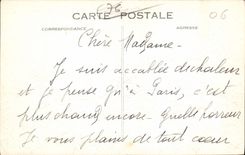 676
CARTE POSTALE
06
CORRESPONDANCE
ADRESSE
Chère Madame -
Je suis accablée de chaleur
et je pense qu'à Paris, c'est
plus chaud encore - Quelle horreur
Je vous plains de tout cœur